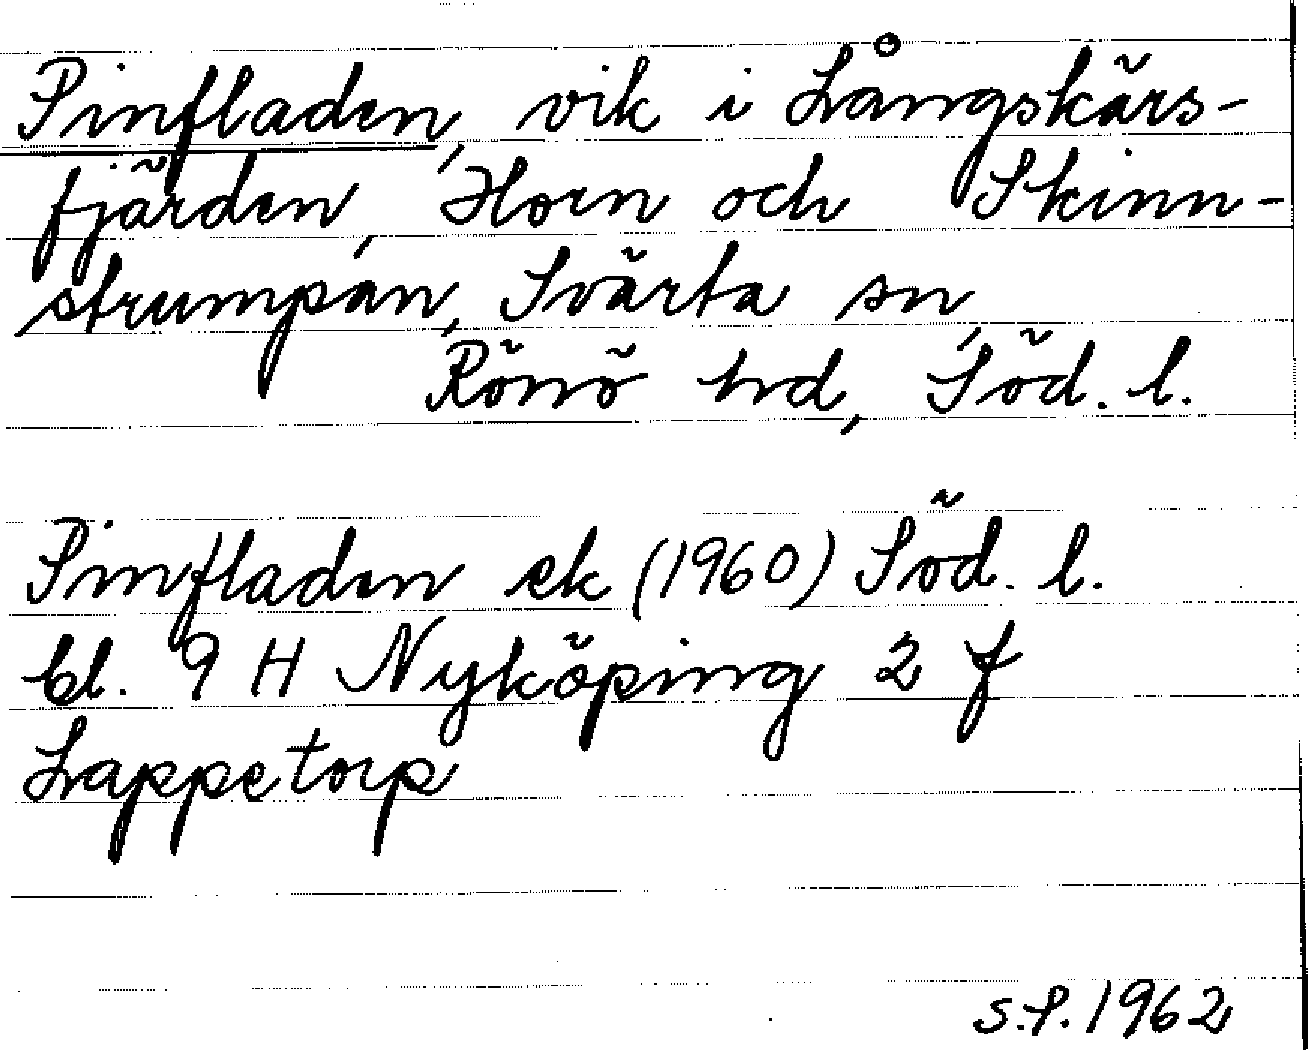 Pinfladen, vik i Långskärs-
fjärden, Horn och Skinn-
strumpan, Svärta sn,
Rönö hd, Söd. l.
Pinfladen ek (1960) Söd. l.
bl. 9 H Nyköping 2 f
Lappetorp
S.P. 1962